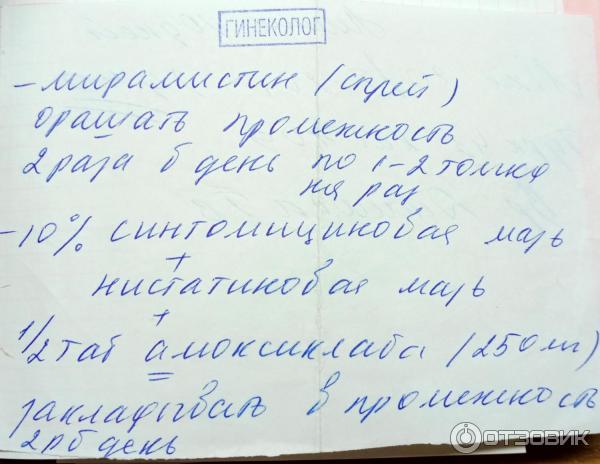 ГИНЕКОЛОГ
- мирамистин (спрей)
орашать промежность
2 раза в день по 1-2 толчка
на раз
- 10% синтомициновая мазь
+
нистатиновая мазь
+
1/2 таб амоксиклава (250 мг)
закладывать в промежность
2 р в день
ОТЗОВИК